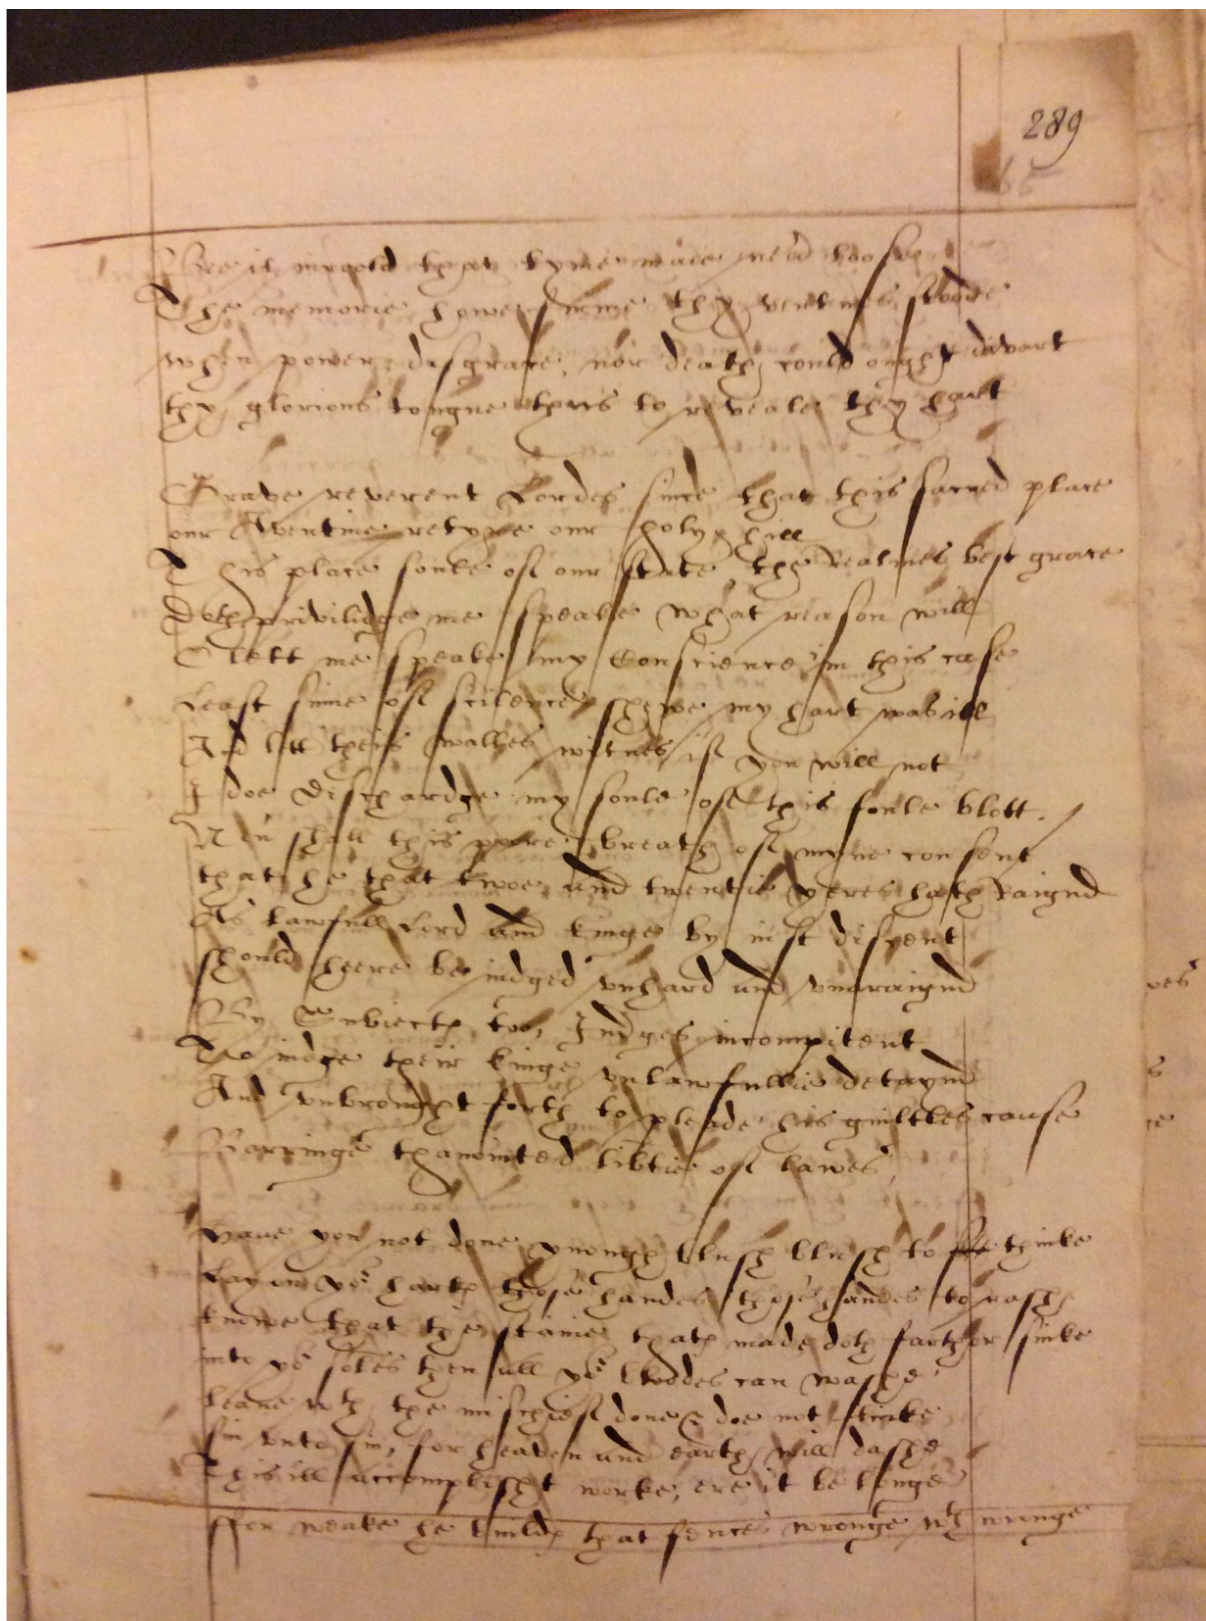 289
65
The memorie howe sure thy vertues stoode
when power, disgrace, nor death could ought divart
thy glorious tongue thus to reveale thy hart
Grave reverent Lordes since that this sacred place
our Aventine retyre our holy hill
This place soule of our state the Realmes best grace
Doth priviledge me speake what reason will
O lett me speake my Conscience in this case
Least sinne of scilence shewe my hart was ill
And lett theis walles witnes if you will not
I doe dischardge my soule of this foule blott.
Neu shall this poore breath of myne consent
that he that twoe and twentie yeres hath Raignd
As lawfull Lord and kinge by iust discent
should heere be iudged vnhard and vnaraignd
By Subiectes too, Judges incompitent
To iudge their kinge vnlawfullie detaynd
And vnbrought forth to pleade his guiltles cause
Barringe thanointed libtie of lawes
Haue you not done ynough blush blush to thinke
Lay on yor hartes those handes those handes to rash
knowe that the staine thats made doth farther sinke
into yor soles then all yor bloodes can washe
leave wth the mischief done & doe not linke
sin vnto sin, for heaven and earth will dashe
This ill accomplisht worke, ere it be longe
ffor weake he buildes that fences wronge wth wronge